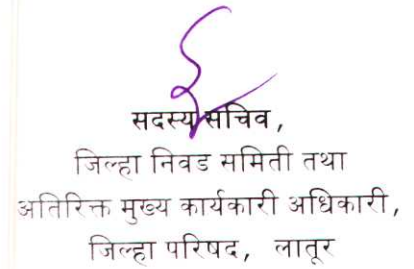 सदस्य सचिव,
जिल्हा निवड समिती तथा
अतिरिक्त मुख्य कार्यकारी अधिकारी,
जिल्हा परिषद, लातूर